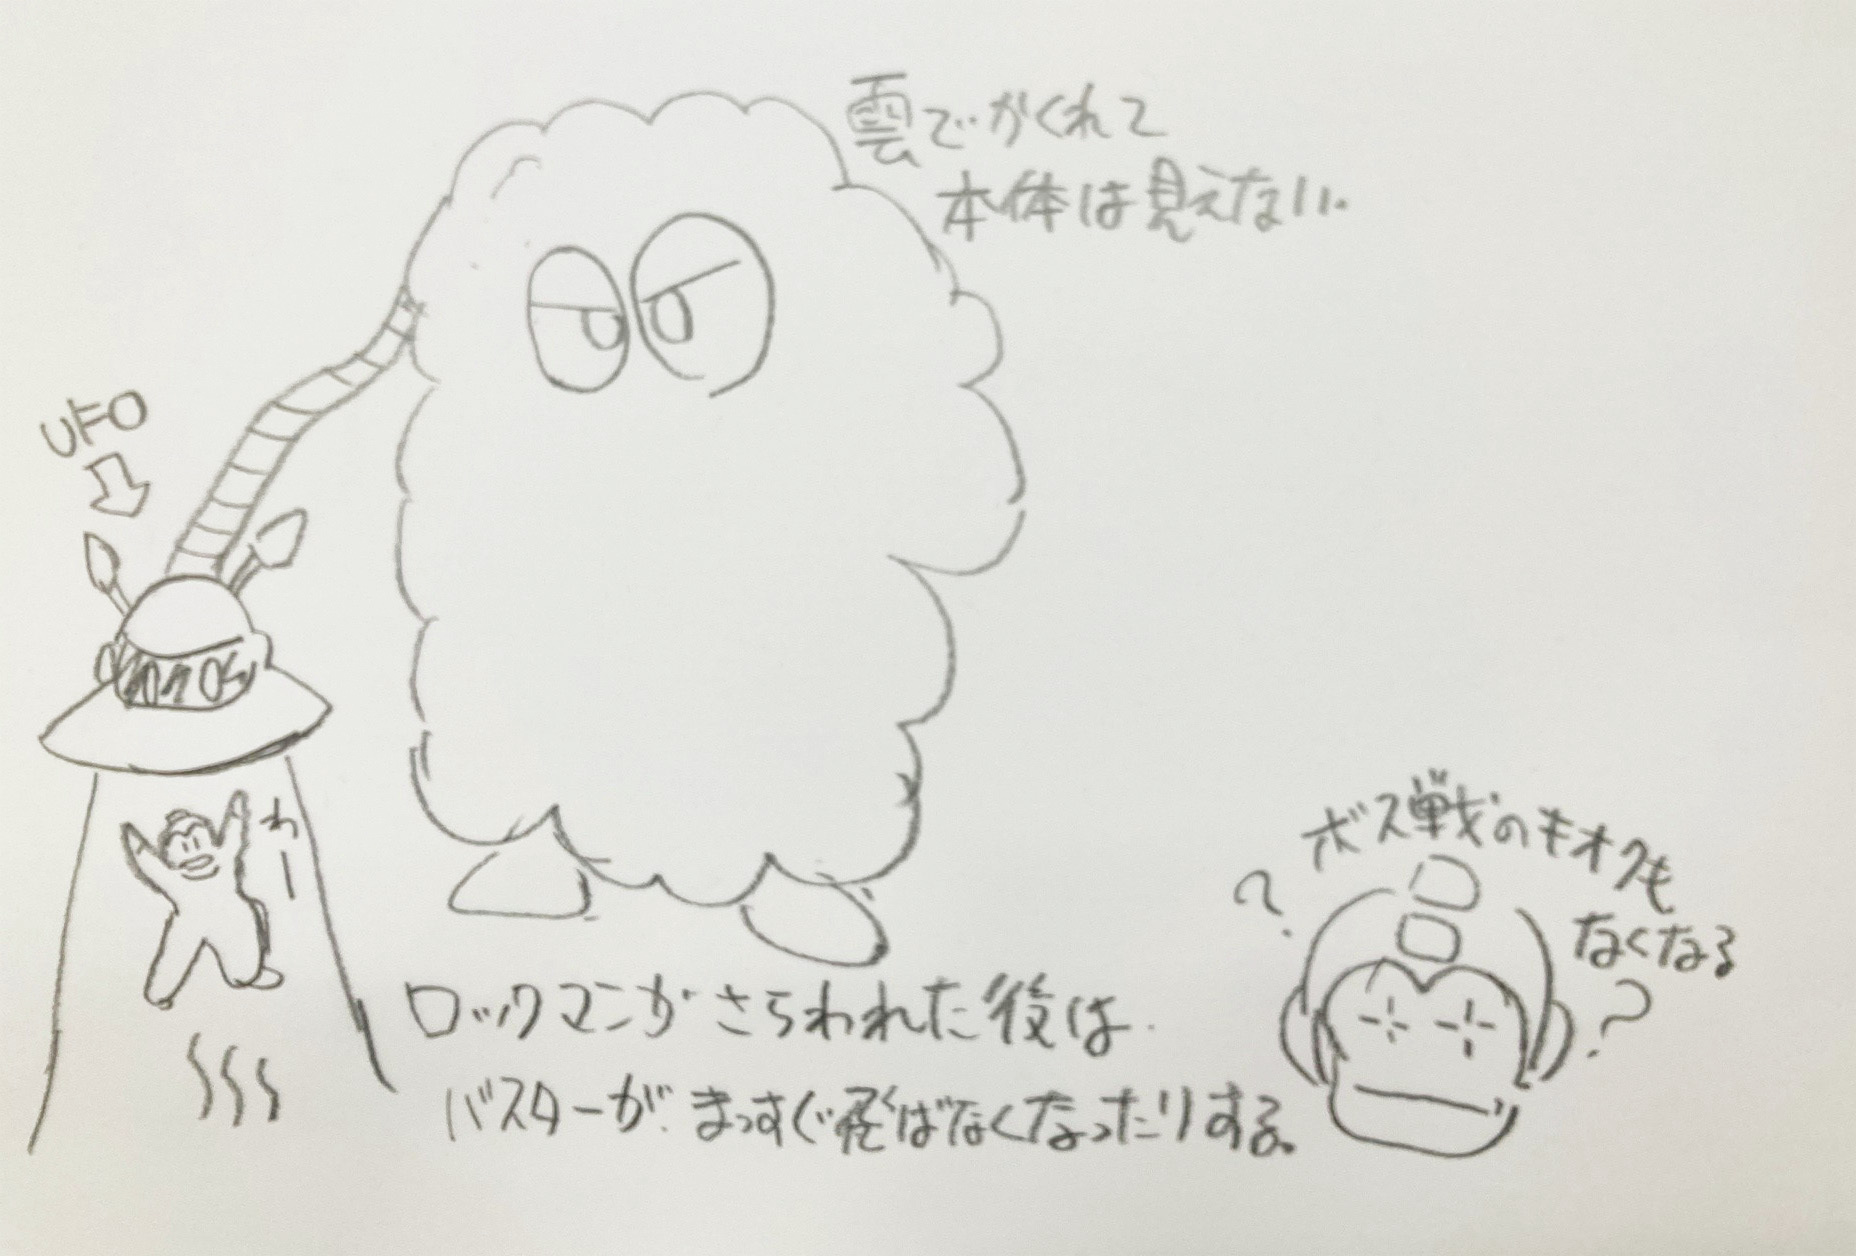 雲でかくれて
本体は見えない.
UFO
わー
ボス戦のキオクも
なくなる
?
?
ロックマンがさらわれた後は
バスターがまっすぐ飛ばなくなったりする。